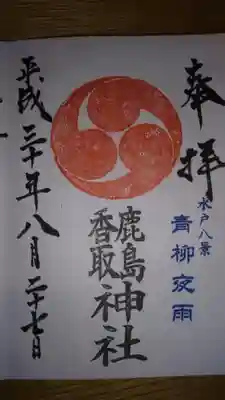 奉拝
水戸八景
青柳夜雨
鹿島
香取
神社
平成三十年八月二十七日